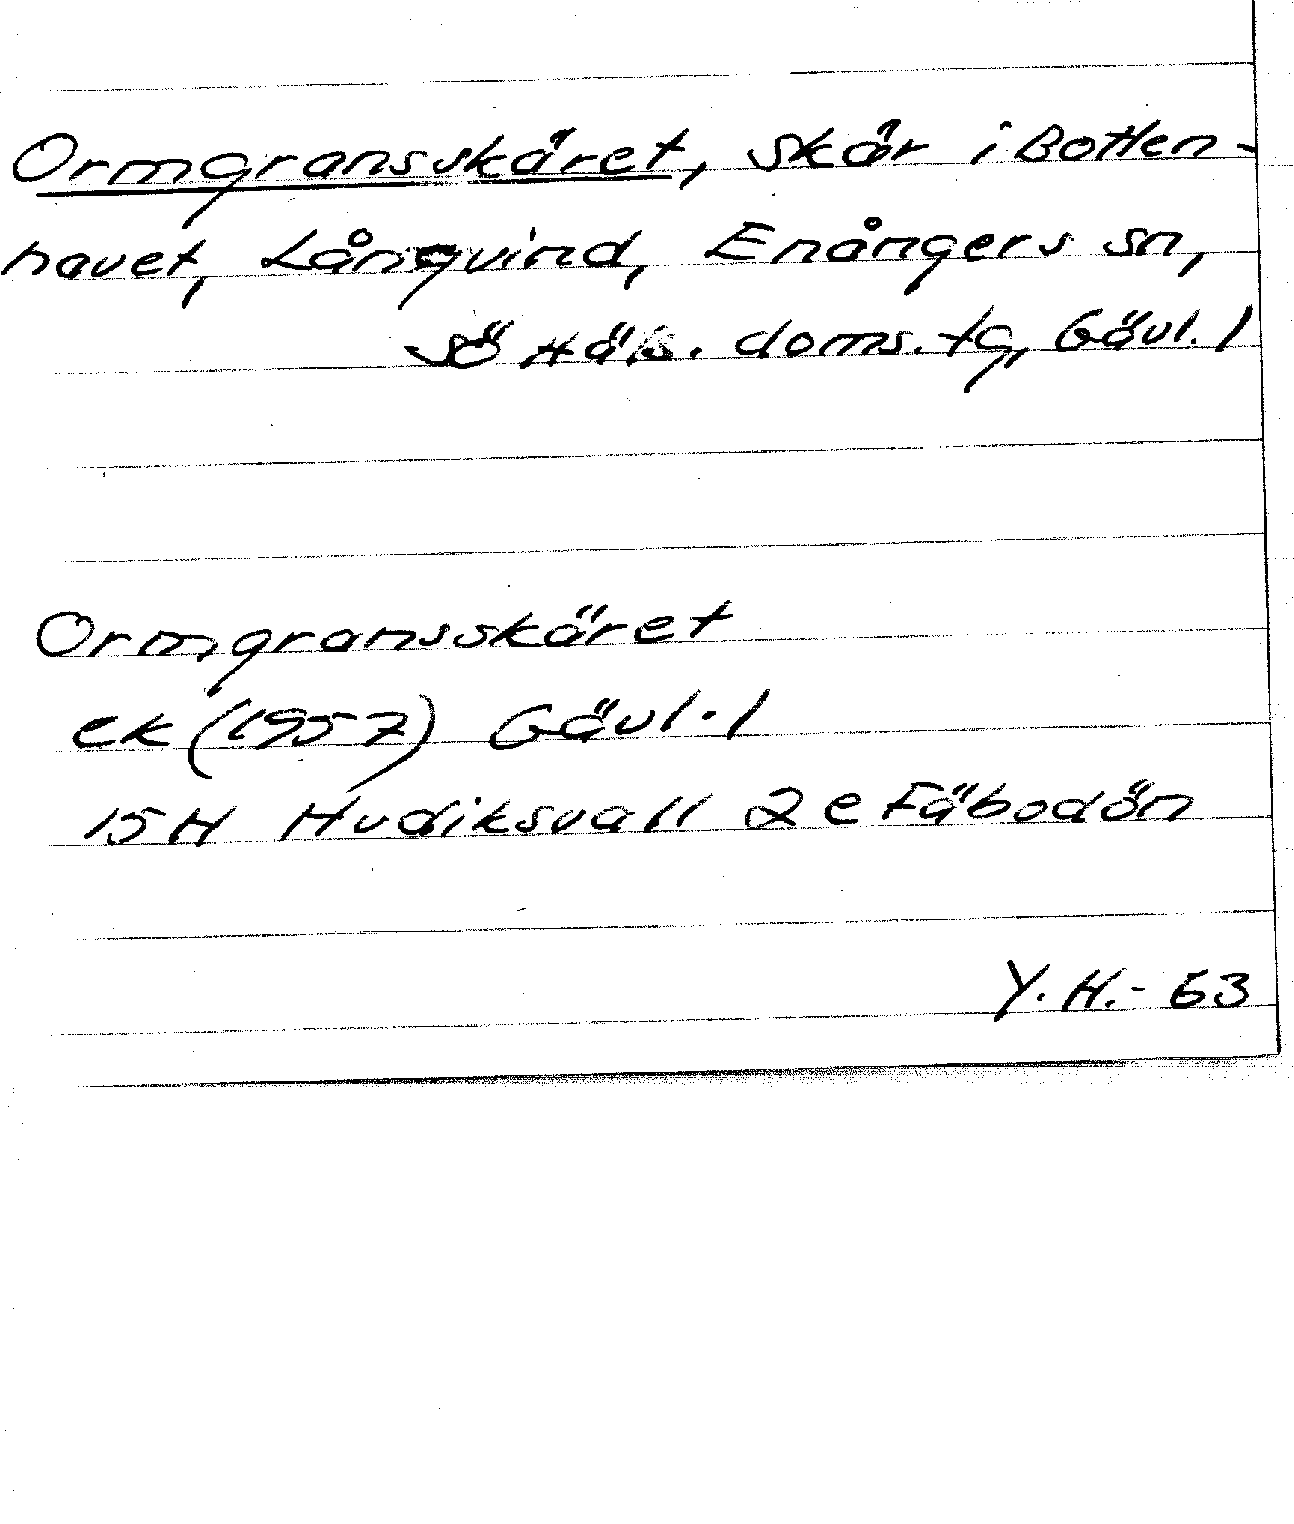 Ormgransskäret, skär i Botten-
havet, Långvind, Enångers sn,
Sö Häls. doms. tg, Gävl. l
Ormgransskäret
ek (1957) Gävl. l
15H Hudiksvall 2e Fäbodön
Y. H. - 63